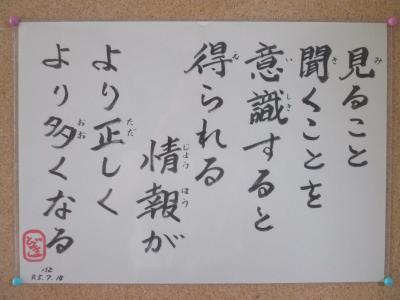 見ること
聞くことを
意識すると
得られる
情報が
より正しく
より多くなる
み
き
い
しき
え
じょう
ほう
ただ
おお
132
R5.7.18